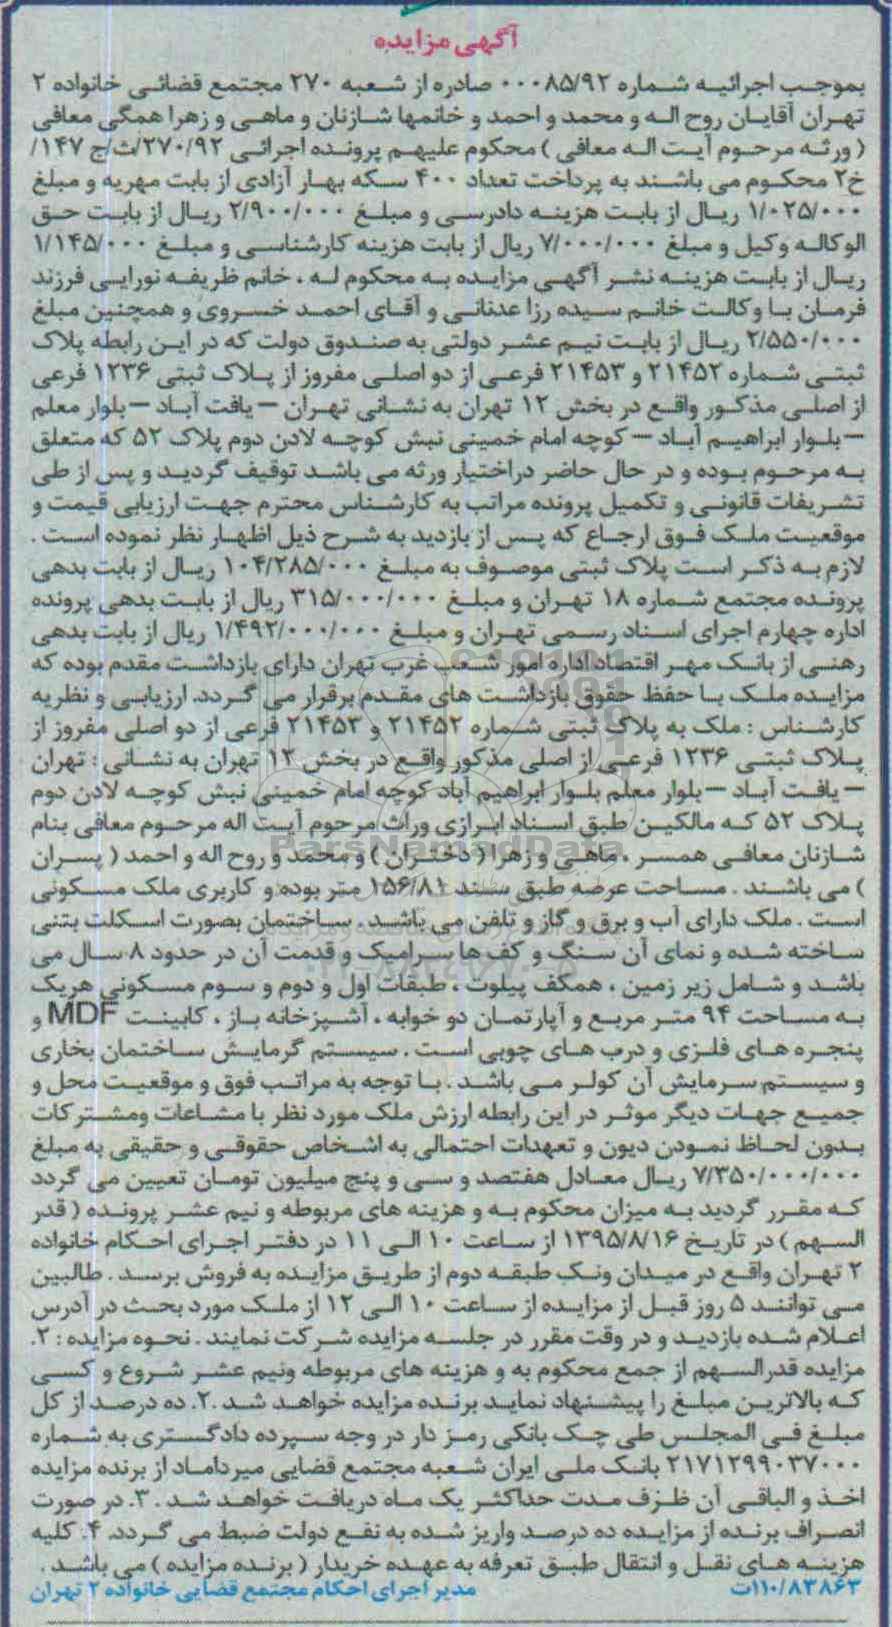 آگهی مزایده
بموجب اجرائیه شماره ۰۰۰۸۵/۹۲ صادره از شعبه ۲۷۰ مجتمع قضائی خانواده ۲
تهران آقایان روح اله و محمد و احمد و خانمها شازنان و ماهی و زهرا همگی معافی
( ورثه مرحوم آیت اله معافی ) محکوم علیهم پرونده اجرائی ۲۷۰/۹۲/ث/ج ۱۴۷/
خ۲ محکوم می باشند به پرداخت تعداد ۴۰۰ سکه بهار آزادی از بابت مهریه و مبلغ
۱/۰۲۵/۰۰۰ ریال از بابت هزینه دادرسی و مبلغ ۲/۹۰۰/۰۰۰ ریال از بابت حق
الوکاله وکیل و مبلغ ۷/۰۰۰/۰۰۰ ریال از بابت هزینه کارشناسی و مبلغ ۱/۱۴۵/۰۰۰
ریال از بابت هزینه نشر آگهی مزایده به محکوم له ، خانم ظریفه نورایی فرزند
فرمان با وکالت خانم سیده رزا عدنانی و آقای احمد خسروی و همچنین مبلغ
۲/۵۵۰/۰۰۰ ریال از بابت نیم عشر دولتی به صندوق دولت که در این رابطه پلاک
ثبتی شماره ۲۱۴۵۲ و ۲۱۴۵۳ فرعی از دو اصلی مفروز از پلاک ثبتی ۱۲۳۶ فرعی
از اصلی مذکور واقع در بخش ۱۲ تهران به نشانی تهران – یافت آباد – بلوار معلم
– بلوار ابراهیم آباد – کوچه امام خمینی نبش کوچه لادن دوم پلاک ۵۲ که متعلق
به مرحوم بوده و در حال حاضر دراختیار ورثه می باشد توقیف گردید و پس از طی
تشریفات قانونی و تکمیل پرونده مراتب به کارشناس محترم جهت ارزیابی قیمت و
موقعیت ملک فوق ارجاع که پس از بازدید به شرح ذیل اظهار نظر نموده است .
لازم به ذکر است پلاک ثبتی موصوف به مبلغ ۱۰۴/۲۸۵/۰۰۰ ریال از بابت بدهی
پرونده مجتمع شماره ۱۸ تهران و مبلغ ۳۱۵/۰۰۰/۰۰۰ ریال از بابت بدهی پرونده
اداره چهارم اجرای اسناد رسمی تهران و مبلغ ۱/۴۹۲/۰۰۰/۰۰۰ ریال از بابت بدهی
رهنی از بانک مهر اقتصاد اداره امور شعب غرب تهران دارای بازداشت مقدم بوده که
مزایده ملک با حفظ حقوق بازداشت های مقدم برقرار می گردد. ارزیابی و نظریه
کارشناس : ملک به پلاک ثبتی شماره ۲۱۴۵۲ و ۲۱۴۵۳ فرعی از دو اصلی مفروز از
پلاک ثبتی ۱۲۳۶ فرعی از اصلی مذکور واقع در بخش ۱۲ تهران به نشانی : تهران
– یافت آباد – بلوار معلم بلوار ابراهیم آباد کوچه امام خمینی نبش کوچه لادن دوم
پلاک ۵۲ که مالکین طبق اسناد ابرازی وراث مرحوم آیت اله مرحوم معافی بنام
شازنان معافی همسر ، ماهی و زهرا ( دختران ) و محمد و روح اله و احمد ( پسران
) می باشند . مساحت عرصه طبق سند ۱۵۶/۸۱ متر بوده و کاربری ملک مسکونی
است . ملک دارای آب و برق و گاز و تلفن می باشد . ساختمان بصورت اسکلت بتنی
ساخته شده و نمای آن سنگ و کف ها سرامیک و قدمت آن در حدود ۸ سال می
باشد و شامل زیر زمین ، همکف پیلوت ، طبقات اول و دوم و سوم مسکونی هریک
به مساحت ۹۴ متر مربع و آپارتمان دو خوابه ، آشپزخانه باز ، کابینت MDF و
پنجره های فلزی و درب های چوبی است . سیستم گرمایش ساختمان بخاری
و سیستم سرمایش آن کولر می باشد . با توجه به مراتب فوق و موقعیت محل و
جمیع جهات دیگر موثر در این رابطه ارزش ملک مورد نظر با مشاعات ومشترکات
بدون لحاظ نمودن دیون و تعهدات احتمالی به اشخاص حقوقی و حقیقی به مبلغ
۷/۳۵۰/۰۰۰/۰۰۰ ریال معادل هفتصد و سی و پنج میلیون تومان تعیین می گردد
که مقرر گردید به میزان محکوم به و هزینه های مربوطه و نیم عشر پرونده ( قدر
السهم ) در تاریخ ۱۳۹۵/۸/۱۶ از ساعت ۱۰ الی ۱۱ در دفتر اجرای احکام خانواده
۲ تهران واقع در میدان ونک طبقه دوم از طریق مزایده به فروش برسد . طالبین
می توانند ۵ روز قبل از مزایده از ساعت ۱۰ الی ۱۲ از ملک مورد بحث در آدرس
اعلام شده بازدید و در وقت مقرر در جلسه مزایده شرکت نمایند . نحوه مزایده : ۲.
مزایده قدرالسهم از جمع محکوم به و هزینه های مربوطه ونیم عشر شروع و کسی
که بالاترین مبلغ را پیشنهاد نماید برنده مزایده خواهد شد .۲. ده درصد از کل
مبلغ فی المجلس طی چک بانکی رمز دار در وجه سپرده دادگستری به شماره
۲۱۷۱۲۹۹۰۳۷۰۰۰ بانک ملی ایران شعبه مجتمع قضایی میرداماد از برنده مزایده
اخذ و الباقی آن ظرف مدت حداکثر یک ماه دریافت خواهد شد . ۳. در صورت
انصراف برنده از مزایده ده درصد واریز شده به نفع دولت ضبط می گردد. ۴. کلیه
هزینه های نقل و انتقال طبق تعرفه به عهده خریدار ( برنده مزایده ) می باشد .
۱۱۰/۸۳۸۶۳ت مدیر اجرای احکام مجتمع قضایی خانواده ۲ تهران
ParsNamadData